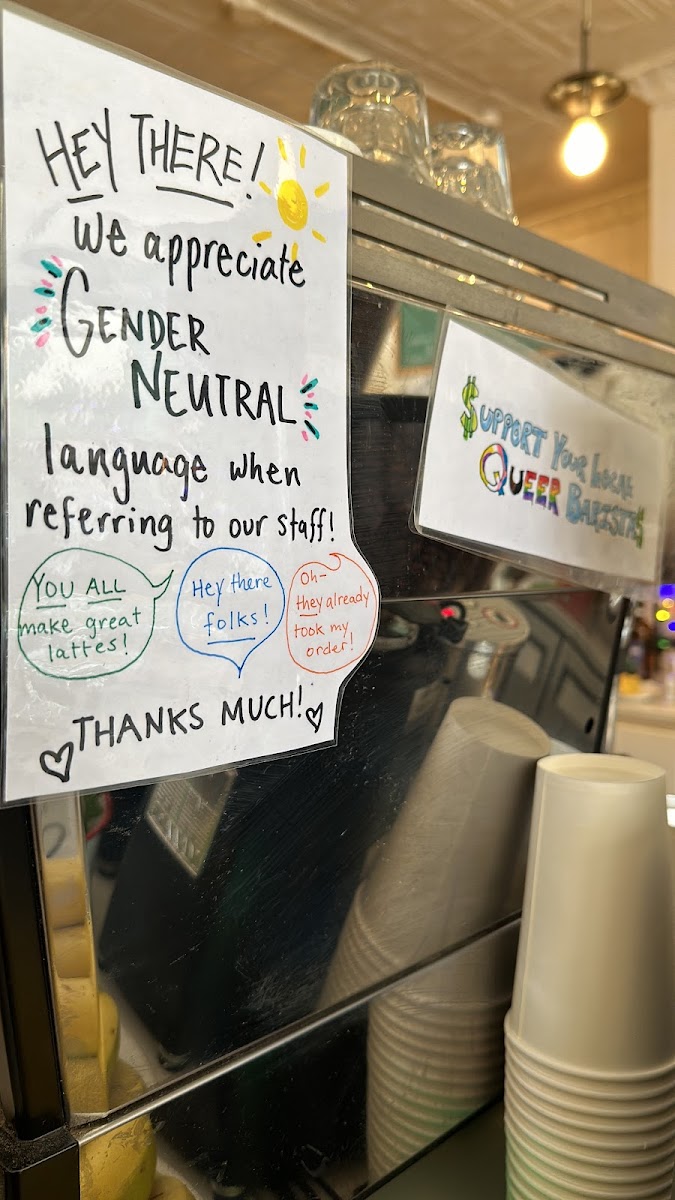 HEY THERE!
We appreciate
GENDER
NEUTRAL
language when
referring to our staff!
YOU ALL
make great
lattes!
Hey there
folks!
Oh-
they already
took my
order!
THANKS MUCH!
$UPPORT YOUR LOCAL
QUEER BARISTA$